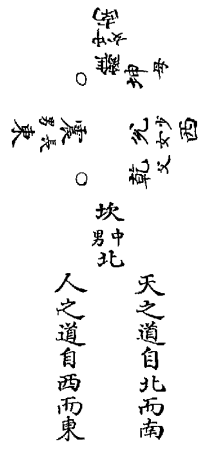 南
中女
離
坤
母
○
東
長男
震
兌
少女
西
○
乾
父
坎
中男
北
天之道自北而南
人之道自西而東